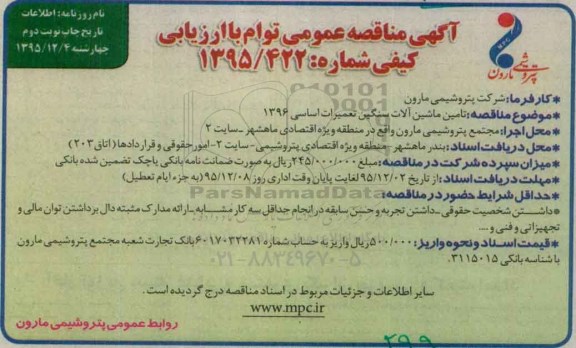 نام روزنامه: اطلاعات
تاریخ چاپ نوبت دوم
چهارشنبه ۱۳۹۵/۱۲/۴
آگهی مناقصه عمومی توام با ارزیابی
کیفی شماره: ۱۳۹۵/۴۲۲
MPC
پتروشیمی مارون
*کارفرما: شرکت پتروشیمی مارون
*موضوع مناقصه: تامین ماشین آلات سنگین تعمیرات اساسی ۱۳۹۶
*محل اجرا: مجتمع پتروشیمی مارون واقع در منطقه ویژه اقتصادی ماهشهر ـ سایت ۲
*محل دریافت اسناد: بندر ماهشهر - منطقه ویژه اقتصادی پتروشیمی - سایت ۲ - امور حقوقی و قراردادها (اتاق ۲۰۳)
*میزان سپرده شرکت در مناقصه: مبلغ ۲۴۵/۰۰۰/۰۰۰ ریال به صورت ضمانت نامه بانکی یا چک تضمین شده بانکی
*مهلت دریافت اسناد: از تاریخ ۹۵/۱۲/۰۲ لغایت پایان وقت اداری روز ۹۵/۱۲/۰۸ (به جزء ایام تعطیل)
*حداقل شرایط حضور در مناقصه:
*داشتن شخصیت حقوقی ـ داشتن تجربه و حسن سابقه در انجام حداقل سه کار مشابه ـ ارائه مدارک مثبته دال بر داشتن توان مالی و
تجهیزاتی و فنی و ....
*قیمت اسناد و نحوه واریز: ۵۰۰/۰۰۰ ریال واریز به حساب شماره ۶۰۱۷۰۳۲۲۸۱ بانک تجارت شعبه مجتمع پتروشیمی مارون
با شناسه بانکی ۳۱۱۵۰۱۵.
سایر اطلاعات و جزئیات مربوط در اسناد مناقصه درج گردیده است.
www.mpc.ir
روابط عمومی پتروشیمی مارون
ParsNamadData
۰۲۱-۸۸۳۴۹۶۷۰-۵
۲۹۹